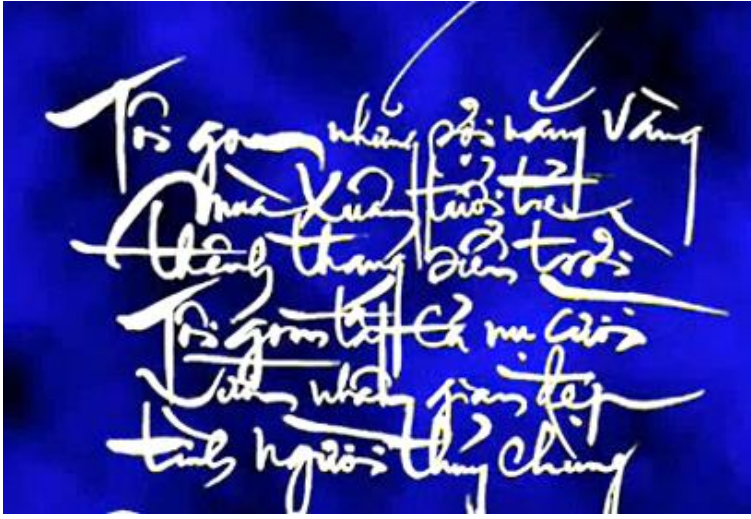 Tôi gom những sợi nắng vàng
mùa Xuân tuổi trẻ
thênh thang biển trời
Tôi gom tất cả nụ cười
Vườn nhân gian đẹp
tình người thủy chung